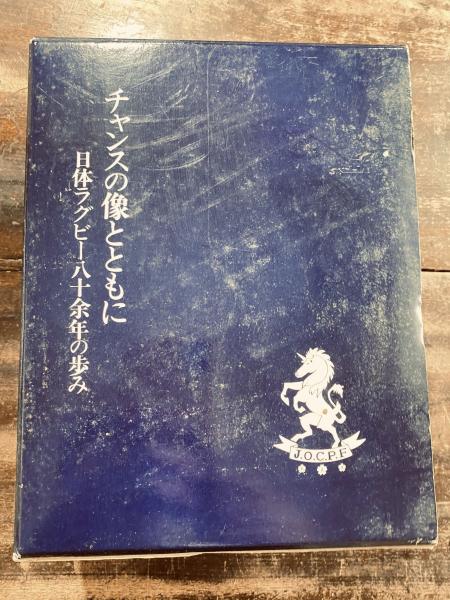 チャンスの像とともに
日体ラグビー八十余年の歩み
J.O.C.P.F